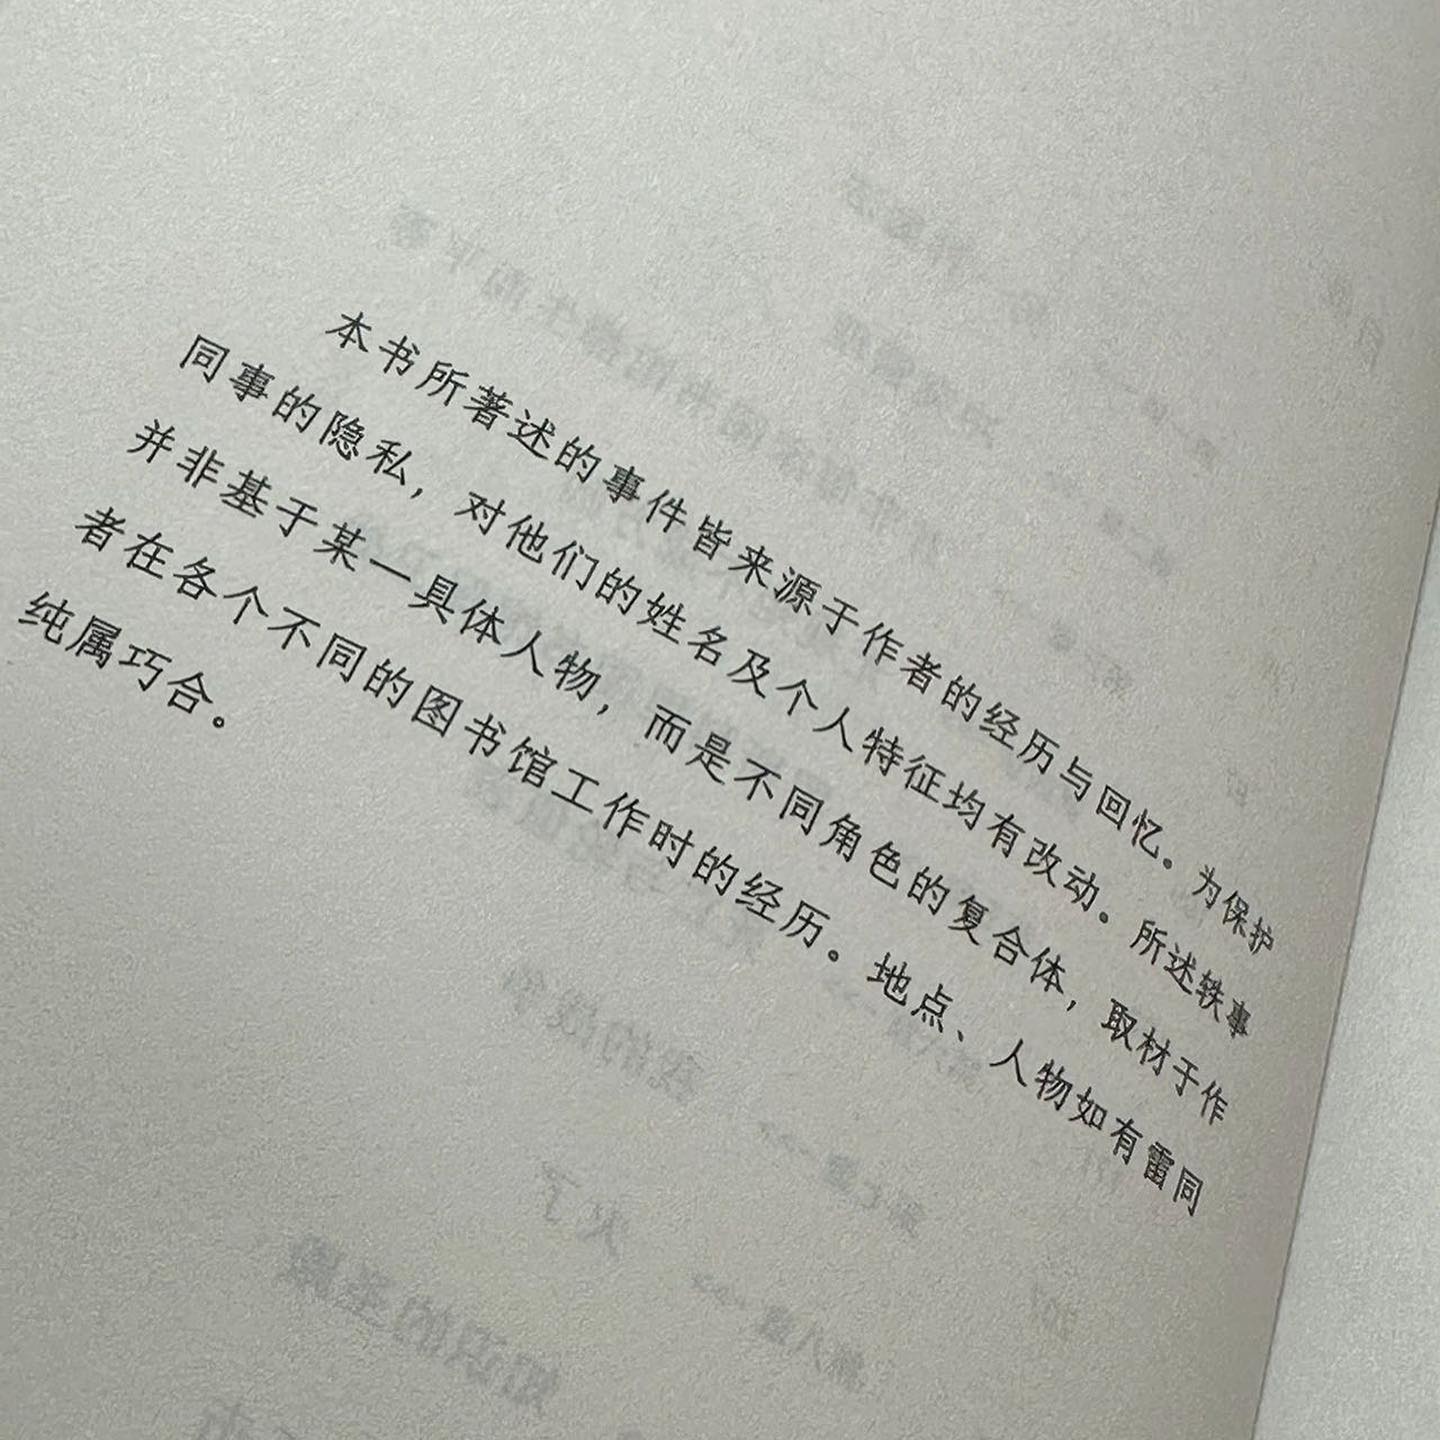 本书所著述的事件皆来源于作者的经历与回忆。为保护
同事的隐私，对他们的姓名及个人特征均有改动。所述轶事
并非基于某一具体人物，而是不同角色的复合体，取材于作
者在各个不同的图书馆工作时的经历。地点、人物如有雷同
纯属巧合。